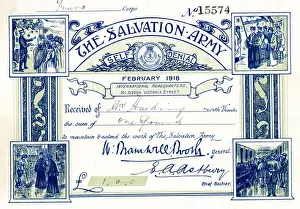 Corps
No 15574
THE SALVATION ARMY
SELF DENIAL
FEBRUARY 1918
INTERNATIONAL HEADQUARTERS,
101, QUEEN VICTORIA STREET
Received of Mrs Harding with Thanks
the sum of One Pound
to maintain & extend the work of The Salvation Army
W. Bramwell Booth General
Chief Cashier.
£1.0.0